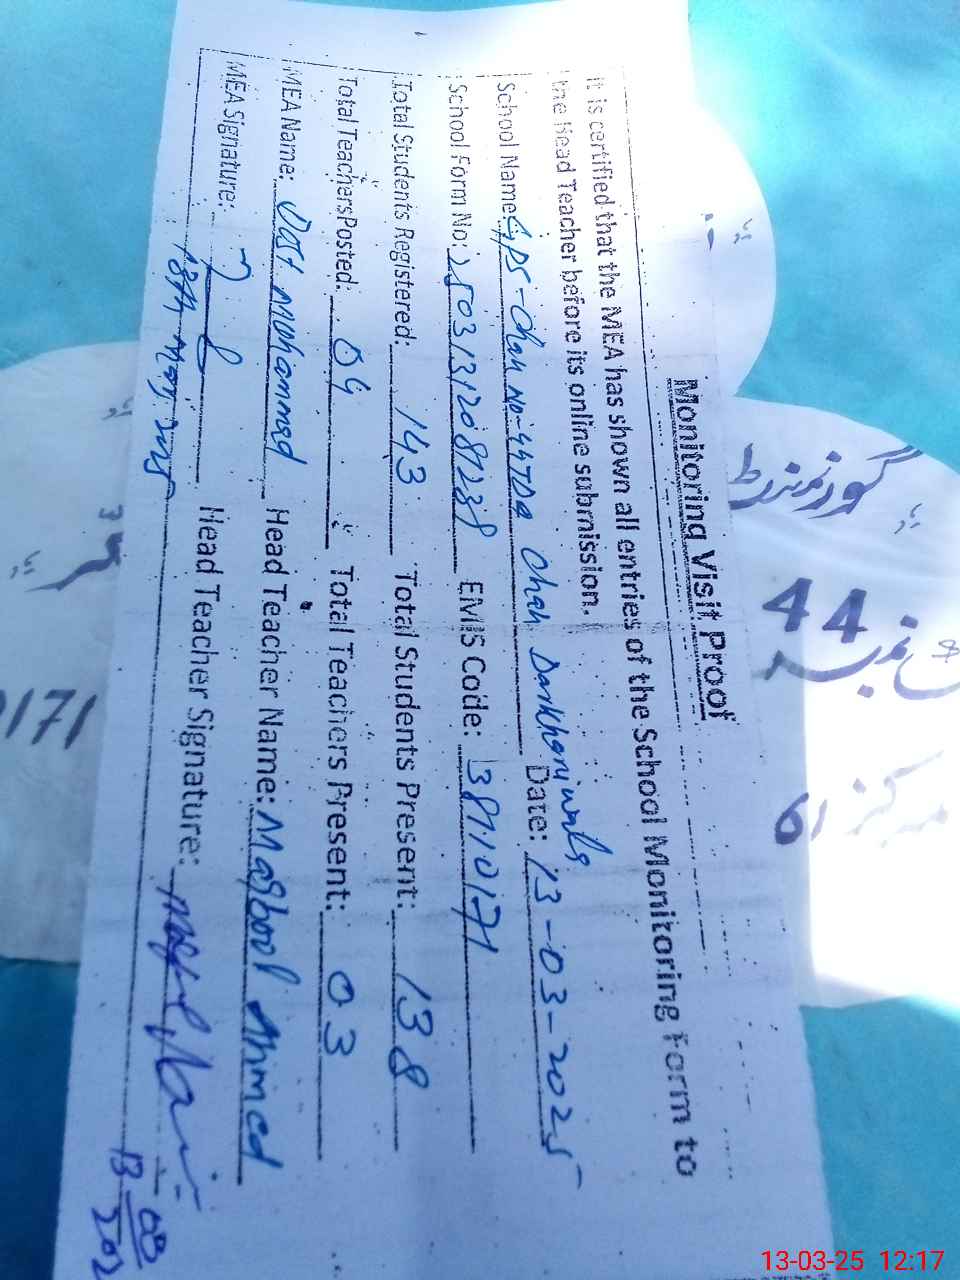 Monitoring Visit Proof
It is certified that the MEA has shown all entries of the School Monitoring Form to
the Head Teacher before its online submission.
School Name: GPS-Chak No-44TDA Chah Darkhanwala Date: 13-03-2025
School Form No: EMIS Code: 38110171
Total Students Registered: 143 Total Students Present: 138
Total Teachers Posted: 04 Total Teachers Present: 03
MEA Name: Dost Mohammad Head Teacher Name: Maqbool Ahmed
MEA Signature: Head Teacher Signature:
13th Mar, 2025
13
03
202
گورنمنٹ
44
نمبر
مرکز 61
0171
13-03-25 12:17